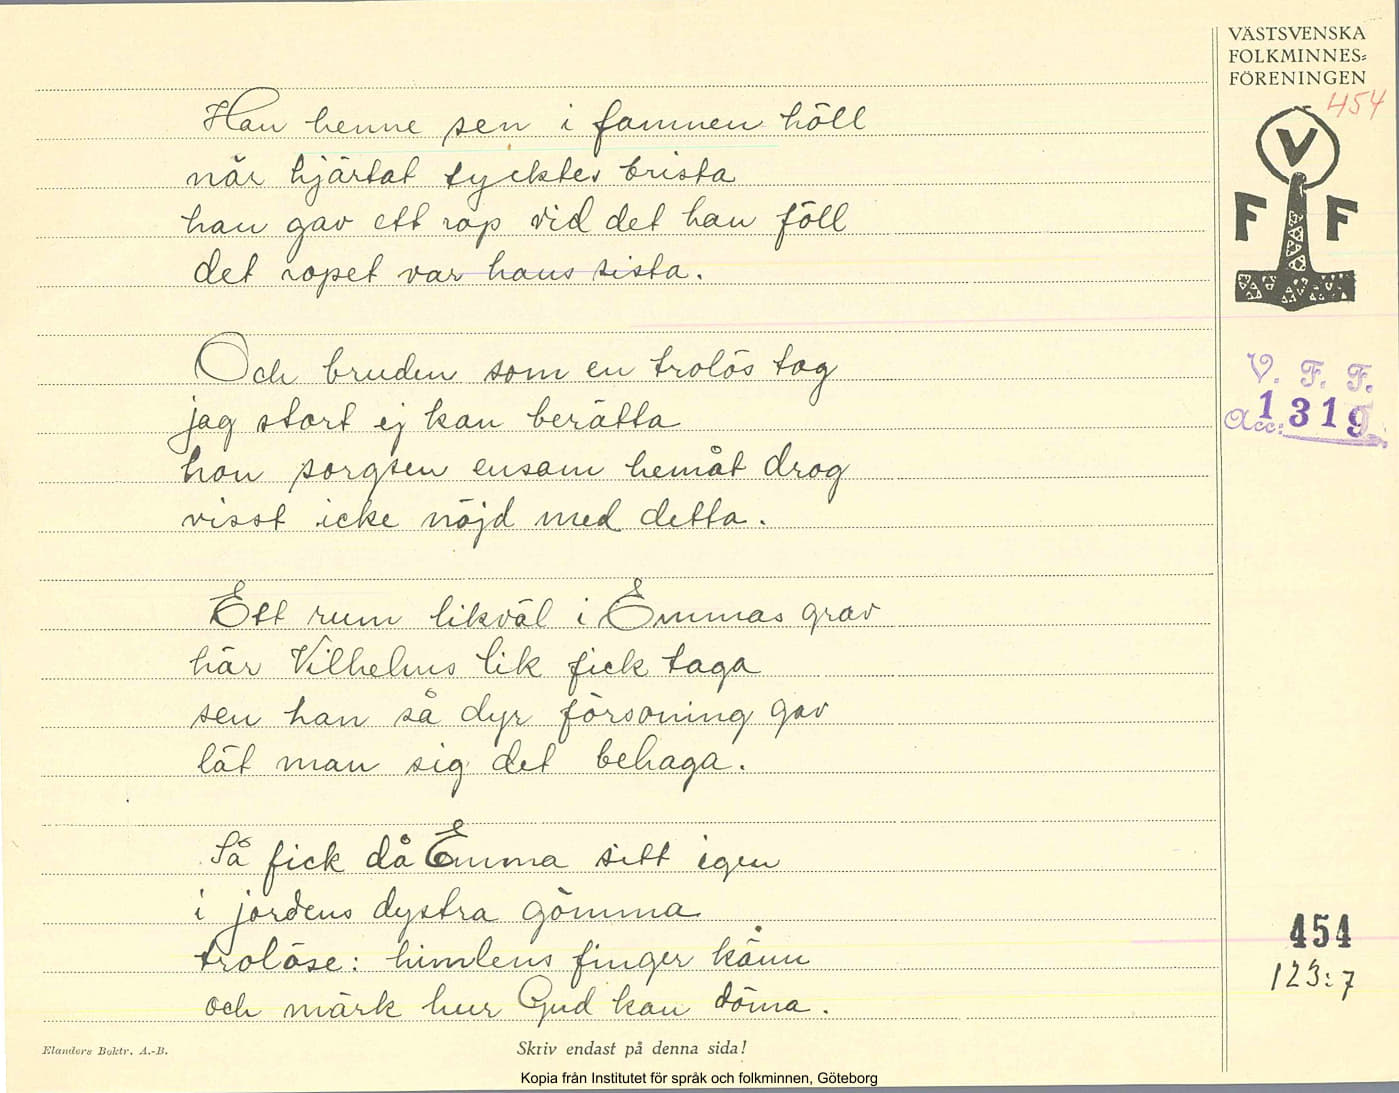 VÄSTSVENSKA
FOLKMINNES=
FÖRENINGEN
454
V
F F
V. F. F.
Acc: 1319
Han henne sen i famnen höll
när hjärtat tycktes brista
han gav ett rop vid det han föll
det ropet var hans sista.
Och bruden som en trolös tog
jag stort ej kan berätta
hon sorgsen ensam hemåt drog
visst icke nöjd med detta.
Ett rum likväl i Emmas grav
här Vilhelms lik fick taga
sen han så dyr försoning gav
lät man sig det behaga.
Så fick då Emma sitt igen
i jordens dystra gömma
trolöse: himlens finger känn
och märk hur Gud kan döma.
454
123:7
Elanders Boktr. A.-B.
Skriv endast på denna sida!
Kopia från Institutet för språk och folkminnen, Göteborg